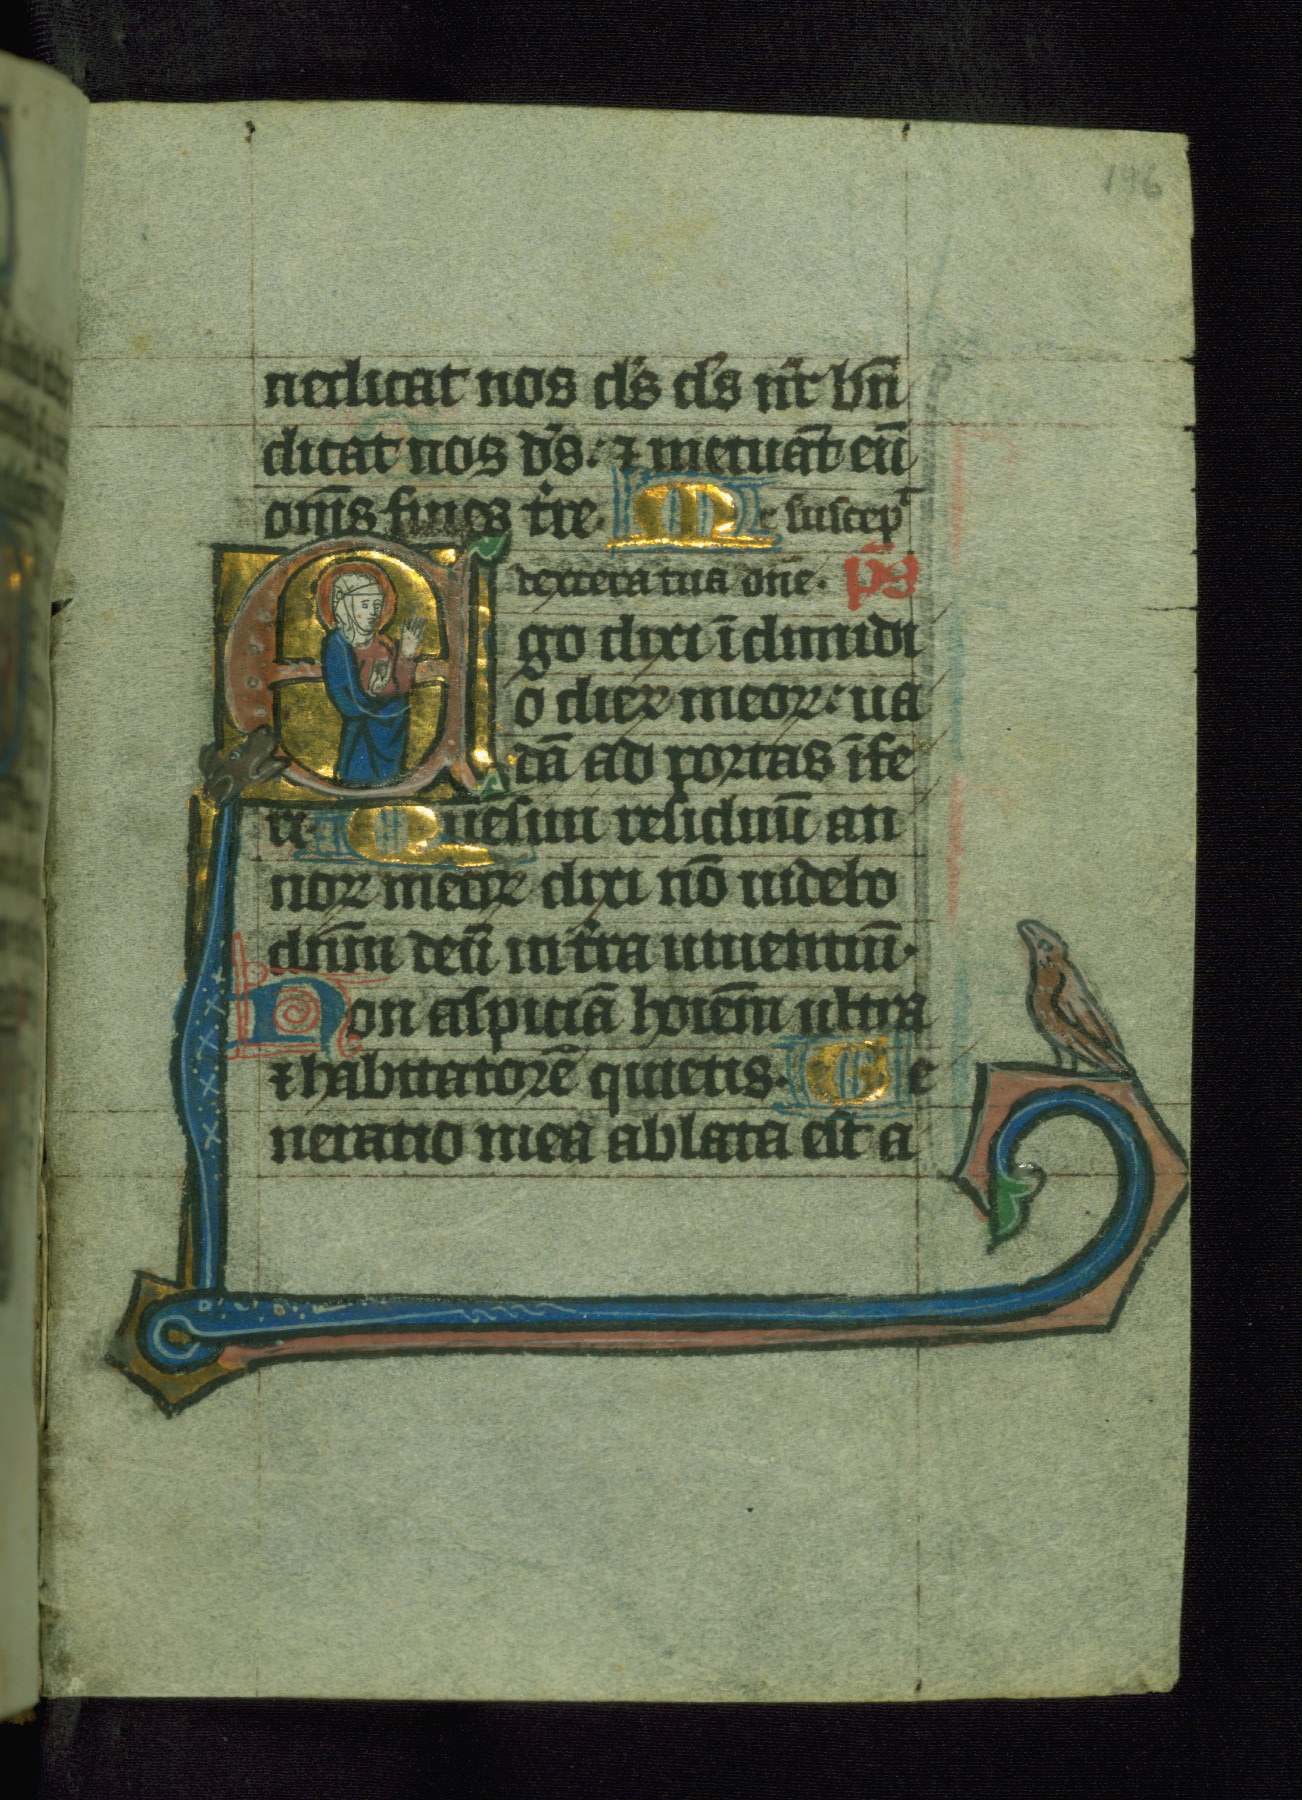 196
nedicat nos d's d's nr̃ bñ
dicat nos d's: ⁊ metuãt eũ
om̃s fines tr̃e. Me suscepᵗ
dextera tua dñe. ps̃
Ego dixi ĩ dimidi
o dieꝝ meoꝝ: ua
dã ad portas ĩfe
ri. Quesiui residuũ an
noꝝ meoꝝ dixi nõ uidebo
dñm deũ in tr̃a uiuentiũ.
Non aspiciã hoiẽm ultra
⁊ habitatorẽ quietis. Ge
neratio mea ablata est a